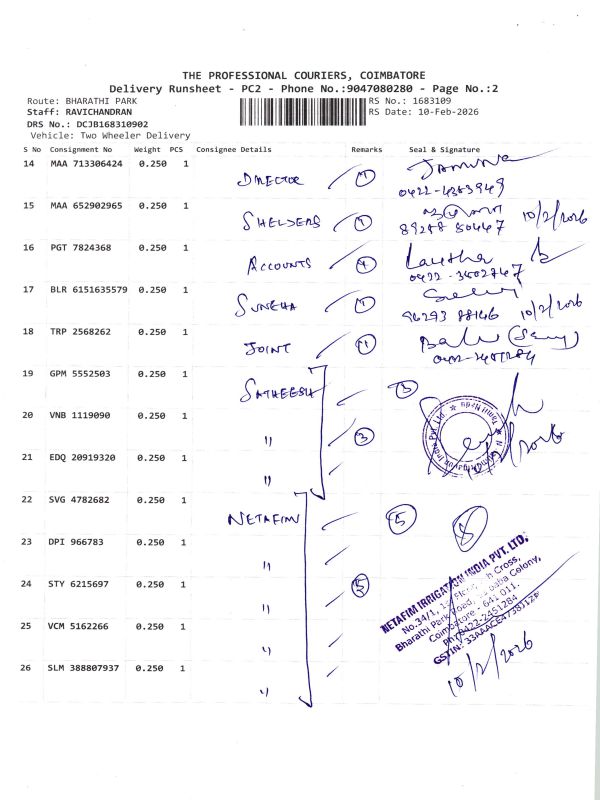 THE PROFESSIONAL COURIERS, COIMBATORE
Delivery Runsheet - PC2 - Phone No.:9047080280 - Page No.:2
Route: BHARATHI PARK
Staff: RAVICHANDRAN
DRS No.: DCJB168310902
Vehicle: Two Wheeler Delivery
RS No.: 1683109
RS Date: 10-Feb-2026
S No Consignment No Weight PCS Consignee Details Remarks Seal & Signature
14 MAA 713306424 0.250 1 DIRECTOR
15 MAA 652902965 0.250 1 10/2/2026
16 PGT 7824368 0.250 1 ACCOUNTS
17 BLR 6151635579 0.250 1 SUNEHA 10/2/2026
18 TRP 2568262 0.250 1 JOINT
19 GPM 5552503 0.250 1 SATHEESH 3
20 VNB 1119090 0.250 1 " 3
21 EDQ 20919320 0.250 1 "
22 SVG 4782682 0.250 1 NETAFIM 5
23 DPI 966783 0.250 1 "
24 STY 6215697 0.250 1 "
25 VCM 5162266 0.250 1 "
26 SLM 388807937 0.250 1 "
NETAFIM IRRIGATION INDIA PVT. LTD,
No.34/1, Cross,
Bharathi Park Road, Colony,
Coimbatore - 641 011.
Ph: 0422-2451284
10/2/2026